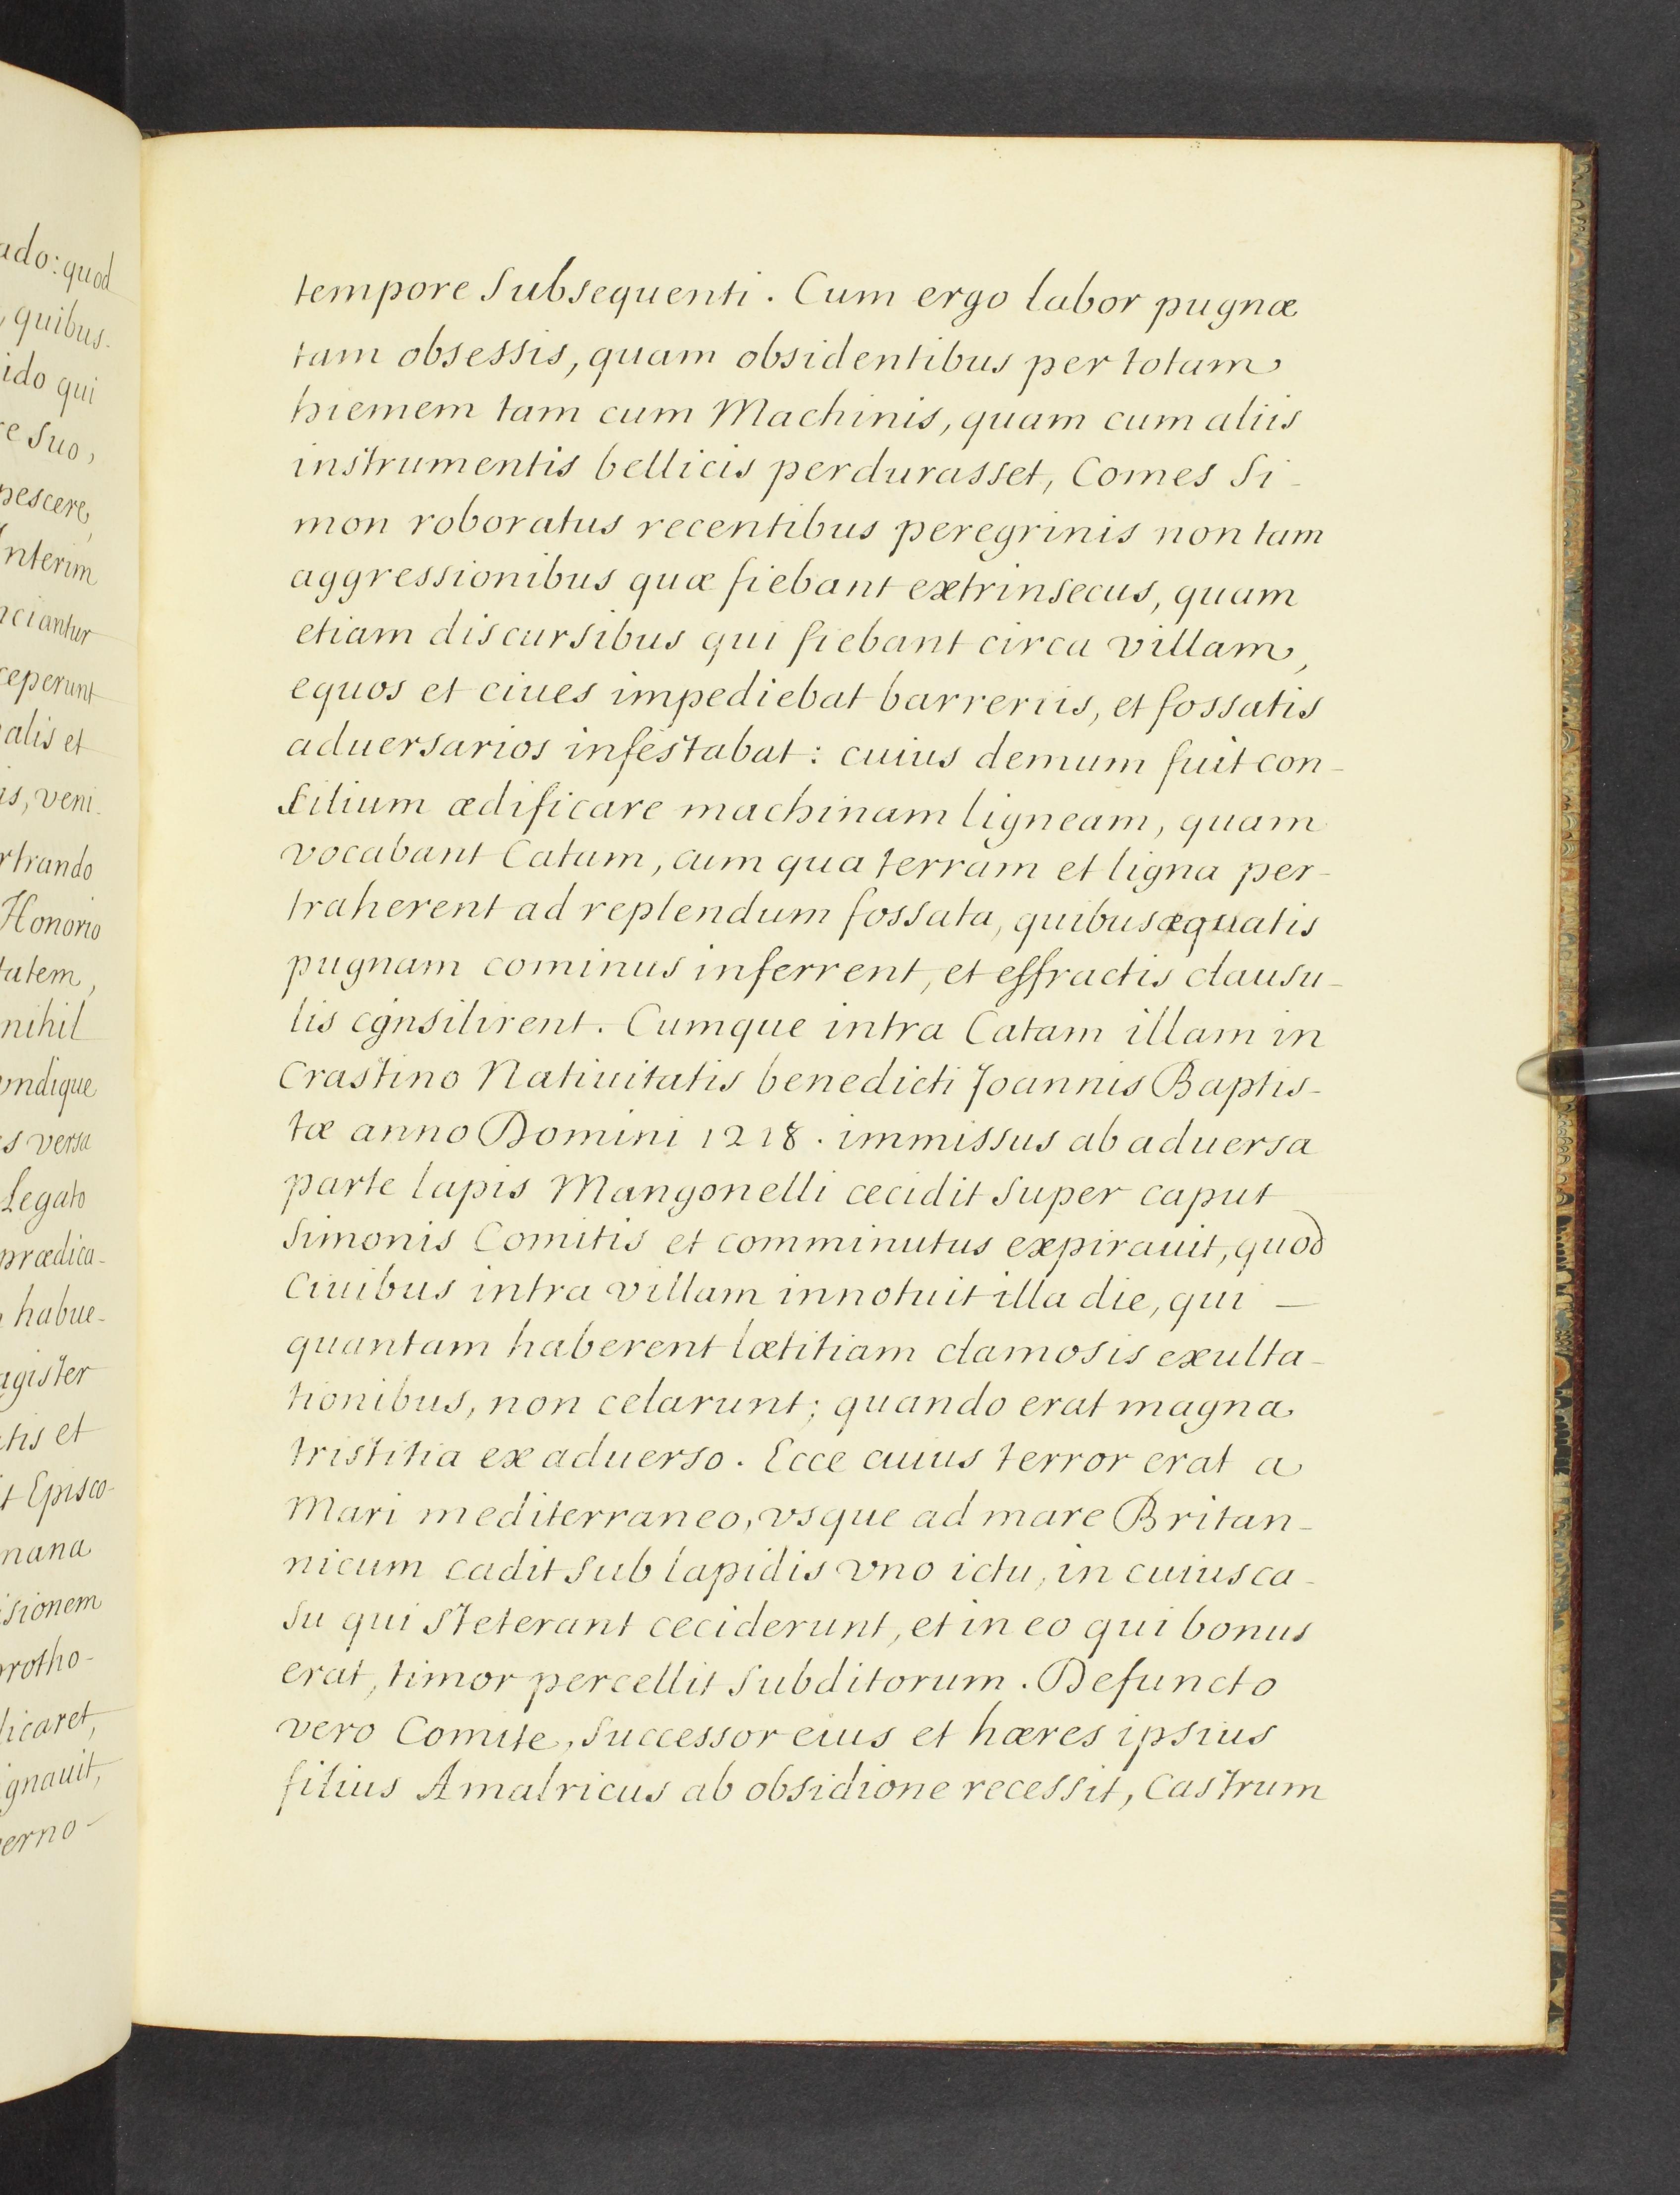 tempore subsequenti. Cum ergo labor pugnæ
tam obsessis, quam obsidentibus per totam
hiemem tam cum Machinis, quam cum aliis
instrumentis bellicis perdurasset, Comes Si-
mon roboratus recentibus peregrinis non tam
aggressionibus quæ fiebant extrinsecus, quam
etiam discursibus qui fiebant circa villam,
equos et ciues impediebat barreriis, et fossatis
aduersarios infestabat: cuius demum fuit con-
silium ædificare machinam ligneam, quam
vocabant Catum, cum qua terram et ligna per-
traherent ad replendum fossata, quibus æquatis
pugnam cominus inferrent, et effractis clausu-
lis consilirent. Cumque intra Catam illam in
Crastino Natiuitatis benedicti Joannis Baptis-
tæ anno Domini 1218. immissus ab aduersa
parte lapis Mangonelli cecidit super caput
Simonis Comitis et comminutus expirauit, quod
Ciuibus intra villam innotuit illa die, qui —
quantam haberent lætitiam clamosis exulta-
tionibus, non celarunt; quando erat magna
tristitia ex aduerso. Ecce cuius terror erat a
Mari mediterraneo, vsque ad mare Britan-
nicum cadit sub lapidis vno ictu, in cuius ca-
su qui steterant ceciderunt, et in eo qui bonus
erat, timor percellit subditorum. Defuncto
vero Comite, successor eius et hæres ipsius
filius Amalricus ab obsidione recessit, Castrum